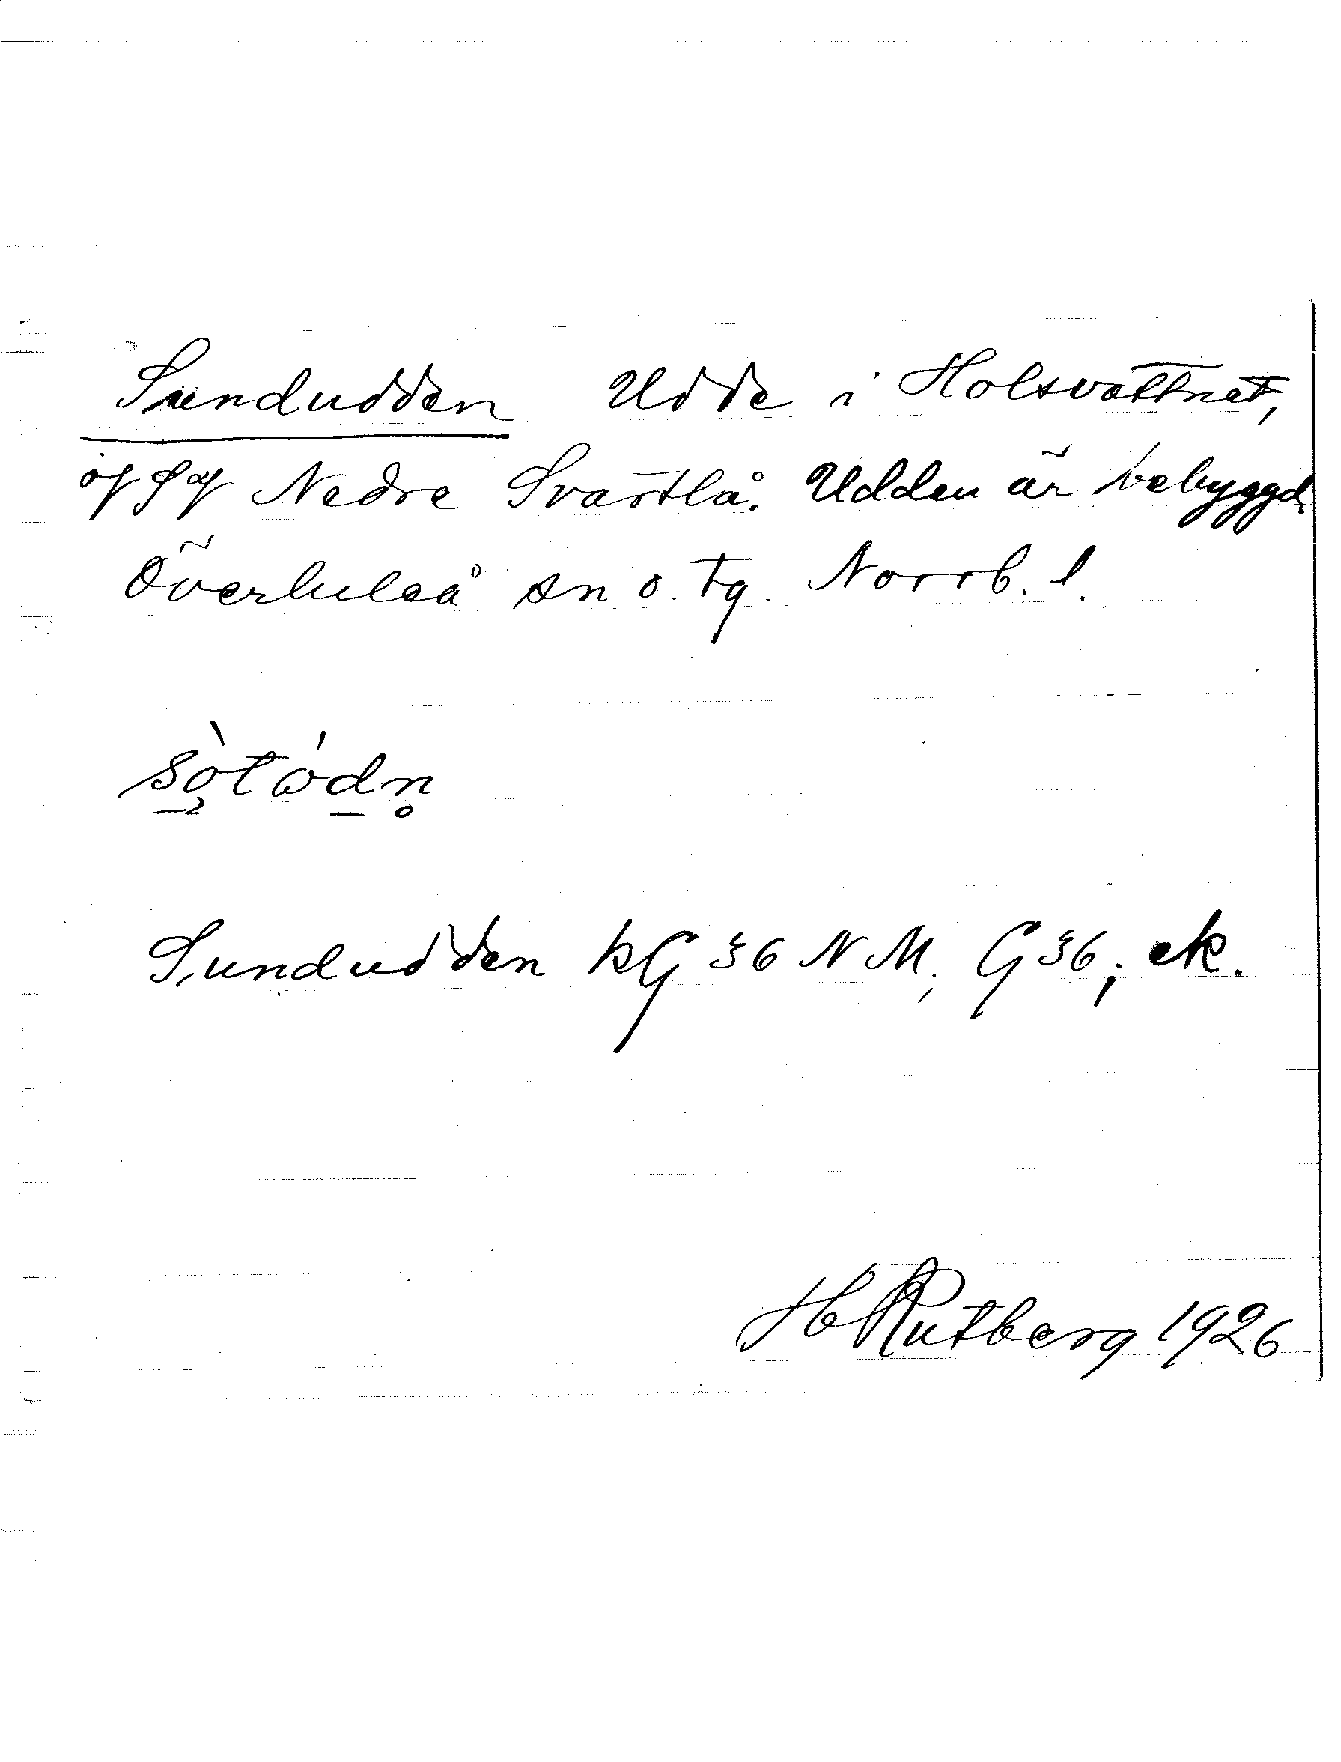 Sundudden Udde i Holsvattnet,
Nedre Svartlå. Udden är bebyggd
Överluleå sn o. tg. Norrb. l.
sòtódn̥
Sundudden kG 36 NM, G 36; ek.
H Rutberg 1926